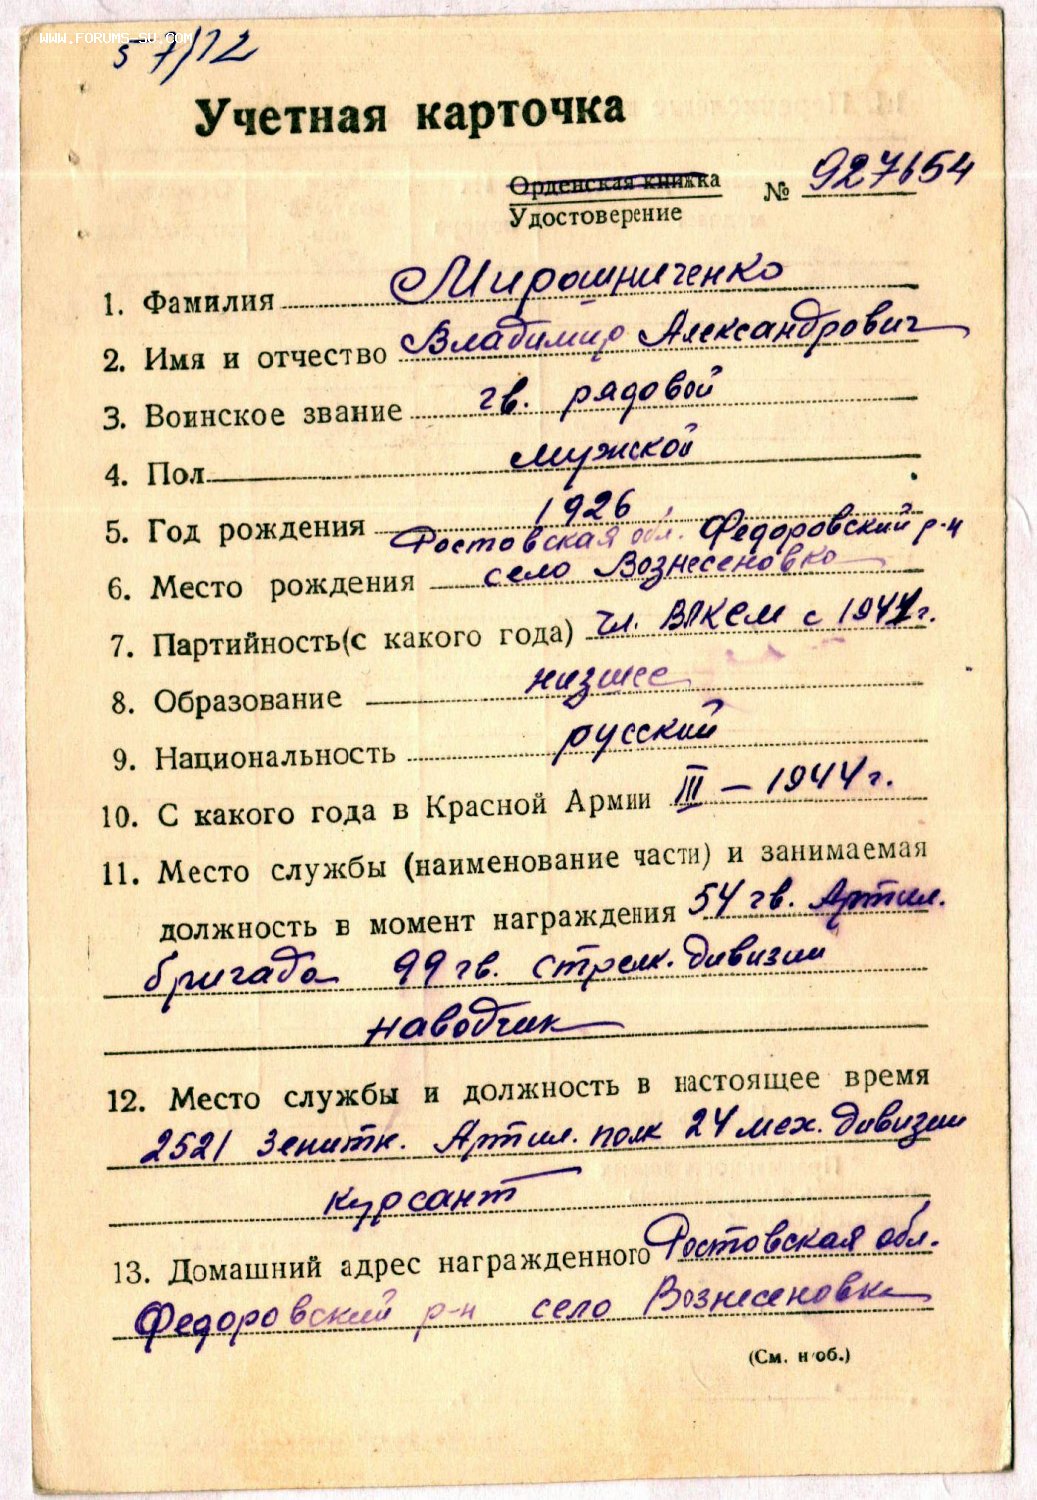 www.forums-su.com
57/12
Учетная карточка
Орденская книжка
Удостоверение
№ 927654
1. Фамилия Мирошниченко
2. Имя и отчество Владимир Александрович
3. Воинское звание гв. рядовой
4. Пол мужской
5. Год рождения 1926
Ростовская обл. Федоровский р-н
6. Место рождения село Вознесеновка
7. Партийность(с какого года) чл. ВЛКСМ с 1944г.
8. Образование низшее
9. Национальность русский
10. С какого года в Красной Армии III – 1944г.
11. Место службы (наименование части) и занимаемая
должность в момент награждения 54 гв. Артил.
бригада 99 гв. стрелк. дивизии
наводчик
12. Место службы и должность в настоящее время
2521 Зенитн. Артил. полк 24 мех. дивизии
курсант
13. Домашний адрес награжденного Ростовская обл.
Федоровский р-н село Вознесеновка
(См. н об.)